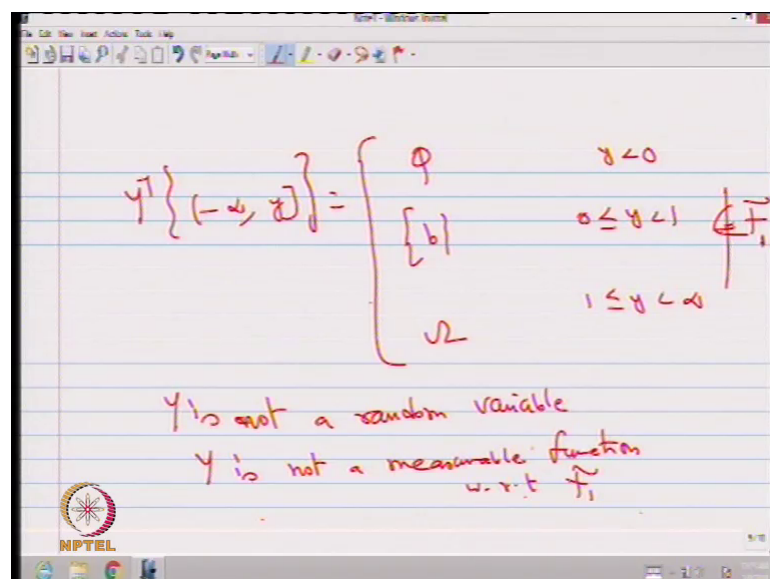 Note1 - Windows Journal
File Edit View Insert Actions Tools Help
Page Width
Y⁻¹{(-∞, y]} = { φ y < 0
{b} 0 ≤ y < 1 ∉ F̃₁
Ω 1 ≤ y < ∞
Y is not a random variable
Y is not a measurable function
w.r.t F̃₁
NPTEL